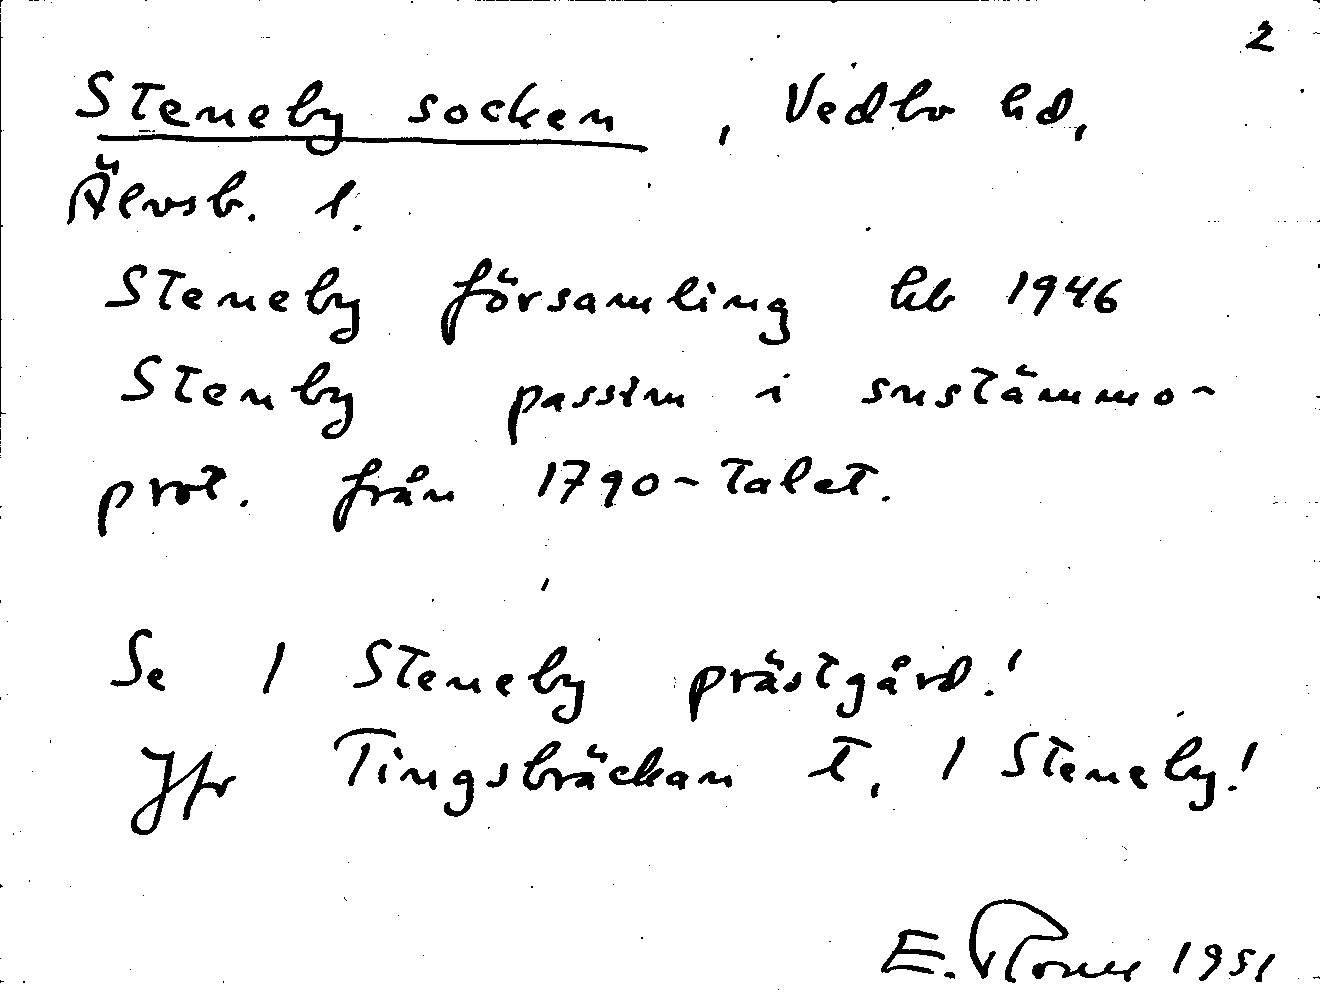 2
Steneby socken, Vedbo hd,
Älvsb. l.
Steneby församling hb 1946
Stenby passim i snstämmo-
prot. från 1790-talet.
Se / Steneby prästgård!
Jfr Tingsbräckan t. / Steneby!
E. 1951